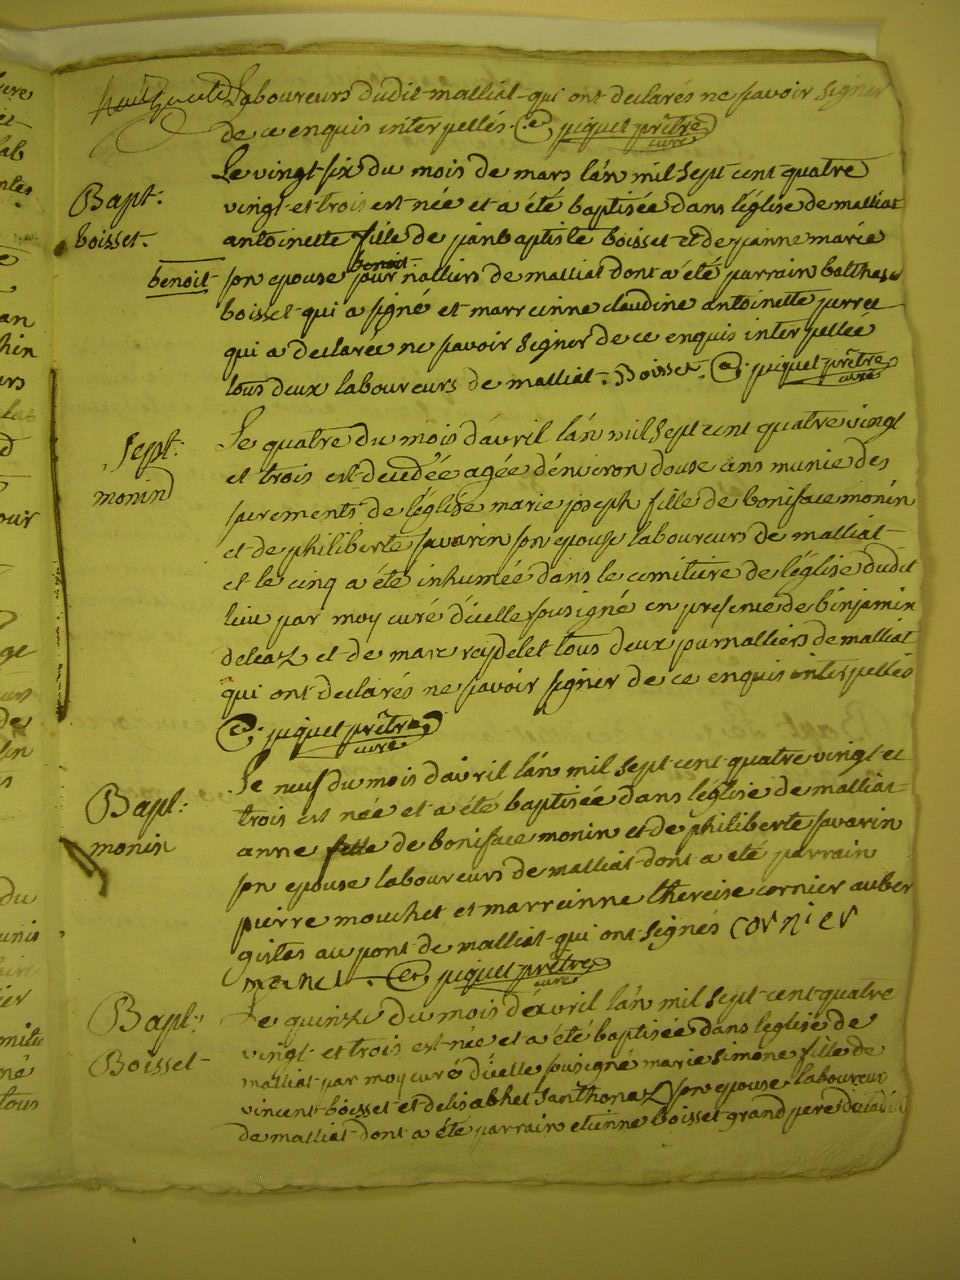 Laboureurs dudit malliat qui ont declarés ne savoir signer
de ce enquis interpellés. piquet prêtre
curé
Bapt:
boisset.
Le vingt six du mois de mars l'an mil sept cent quatre
vingt et trois est née et a été baptisée dans l'église de malliat
antoinette fille de jean baptiste boisset et de jeanne marie
benoit son epouse journalliers de malliat dont a été parrain balthasar
benoit.
boisset qui a signé et marreinne claudine antoinette
qui a declarée ne savoir signer de ce enquis interpellée
tous deux laboureurs de malliat. Boisset. piquet prêtre
curé
sept:
monin
Le quatre du mois d'avril l'an mil sept cent quatre vingt
et trois est decedée agée d'environ douse ans munie des
sacrements de l'église marie joseph fille de boniface monin
et de philiberte savarin son epouse laboureurs de malliat
et le cinq a été inhumée dans le cimitiere de l'église dudit
lieu par moy curé d'icelle sousigné en presence de binjamin
deleaz et de marc rapdelet tous deux journalliers de malliat
qui ont declarés ne savoir signer de ce enquis interpellés
piquet prêtre
curé
Bapt:
monin
Le neuf du mois d'avril l'an mil sept cent quatre vingt et
trois est née et a été baptisée dans l'église de malliat
anne fille de boniface monin et de philiberte savarin
son epouse laboureurs de malliat dont a été parrain
pierre mouchet et marreinne thereise cornier auber
gistes au pont de malliat qui ont signés cornier
piquet prêtre
curé
Bapt:
Boisset
Le quinze du mois d'avril l'an mil sept cent quatre
vingt et trois est née et a été baptisée dans l'eglise de
malliat par moy curé d'icelle sousigné marie simone fille de
vincent boisset et delisabhet Janthonaz son epouse laboureur
de malliat dont a été parrain etienne boisset grand pere